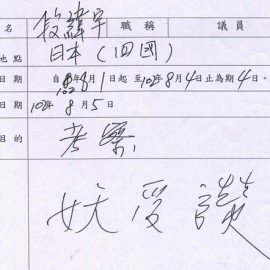 名 段緯宇 職稱 議員
地點 日本（四國）
日期 自102年8月1日起至102年8月4日止為期4日。
日期 102年8月5日
目的 考察